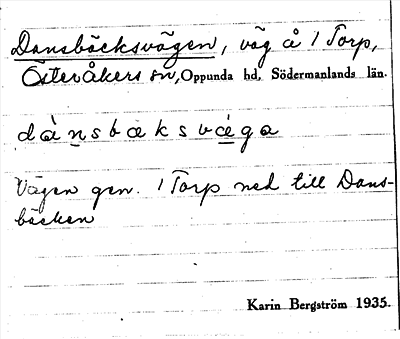 Dansbäcksvägen, väg å 1 Torp,
Österåkers sn, Oppunda hd, Södermanlands län.
dànsbäksvéga
Vägen gen. 1 Torp ned till Dans-
bäcken
Karin Bergström 1935.